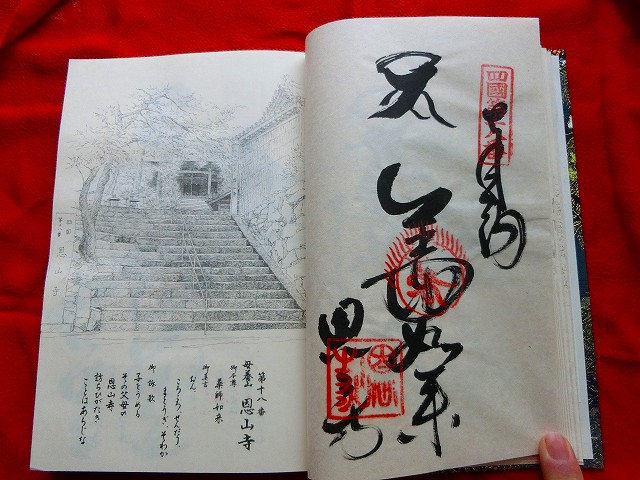 奉納
薬師如来
恩山寺
四国
恩山寺
第十八番
母養山 恩山寺
御本尊 薬師如来
御真言
おん、
ころころ、せんだり、
まとうぎ、そわか
御詠歌
子をうめる
その父母の
恩山寺
訪らひがたき
ことはあらじな